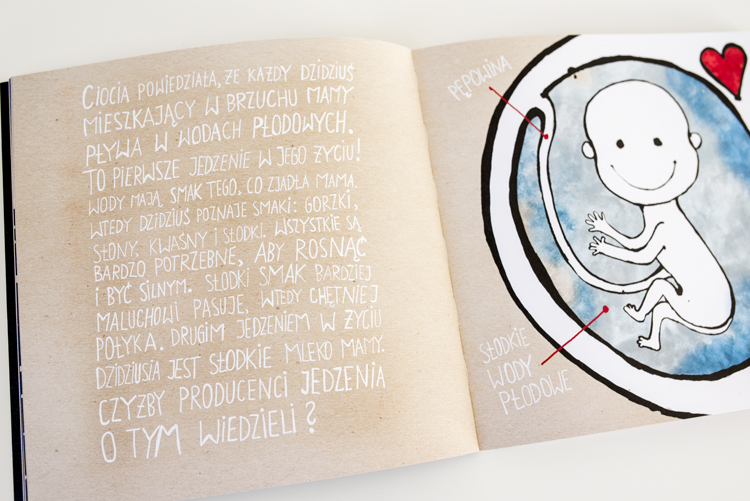 CIOCIA POWIEDZIAŁA, ŻE KAŻDY DZIDZIUŚ
MIESZKAJĄCY W BRZUCHU MAMY
PŁYWA W WODACH PŁODOWYCH.
TO PIERWSZE JEDZENIE W JEGO ŻYCIU!
WODY MAJĄ SMAK TEGO, CO ZJADŁA MAMA.
WTEDY DZIDZIUŚ POZNAJE SMAKI: GORZKI,
SŁONY, KWAŚNY I SŁODKI. WSZYSTKIE SĄ
BARDZO POTRZEBNE, ABY ROSNĄĆ
I BYĆ SILNYM. SŁODKI SMAK BARDZIEJ
MALUCHOWI PASUJE, WTEDY CHĘTNIEJ
POŁYKA. DRUGIM JEDZENIEM W ŻYCIU
DZIDZIUSIA JEST SŁODKIE MLEKO MAMY.
CZYŻBY PRODUCENCI JEDZENIA
O TYM WIEDZIELI?
PĘPOWINA
SŁODKIE
WODY
PŁODOWE